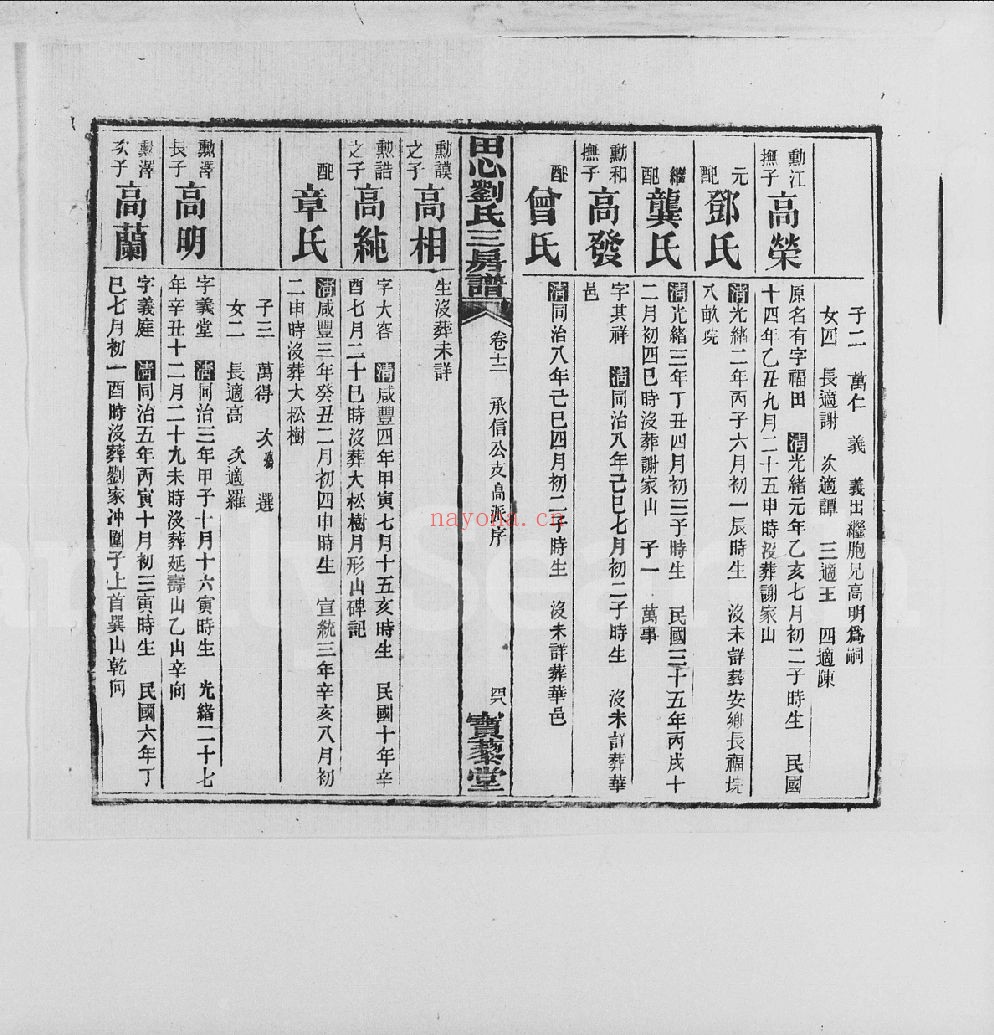 子二　萬仁　義　義出繼胞兄高明爲嗣
女四　長適謝　次適譚　三適王　四適陳
勳江
撫子
高榮
原名有字福田　清光緒元年乙亥七月初二子時生　民國
十四年乙丑九月二十五申時沒葬謝家山
元
配
鄧氏
清光緒二年丙子六月初一辰時生　沒未詳葬安鄉長福垸
八畝垸
繼
配
龔氏
清光緒三年丁丑四月初三子時生　民國三十五年丙戌十
二月初四巳時沒葬謝家山　子一　萬事
勳和
撫子
高發
字其祥　清同治八年己巳七月初二子時生　沒未詳葬華
邑
配
曾氏
清同治八年己巳四月初二子時生　沒未詳葬華邑
田心劉氏三房譜
卷十二　承信公支高派序
寶藜堂
勳謨
之子
高相
生沒葬未詳
勳誥
之子
高純
字大客　清咸豐四年甲寅七月十五亥時生　民國十年辛
酉七月二十巳時沒葬大松樹月形山碑記
配
章氏
清咸豐三年癸丑二月初四申時生　宣統三年辛亥八月初
二申時沒葬大松樹
子三　萬得　次　選
女二　長適高　次適羅
勳澤
長子
高明
字義堂　清同治三年甲子十月十六寅時生　光緒二十七
年辛丑十二月二十九未時沒葬延壽山乙山辛向
勳澤
次子
高蘭
字義庭　清同治五年丙寅十月初三寅時生　民國六年丁
巳七月初一酉時沒葬劉家冲圍子上首巽山乾向
nayona.cn
Family Search